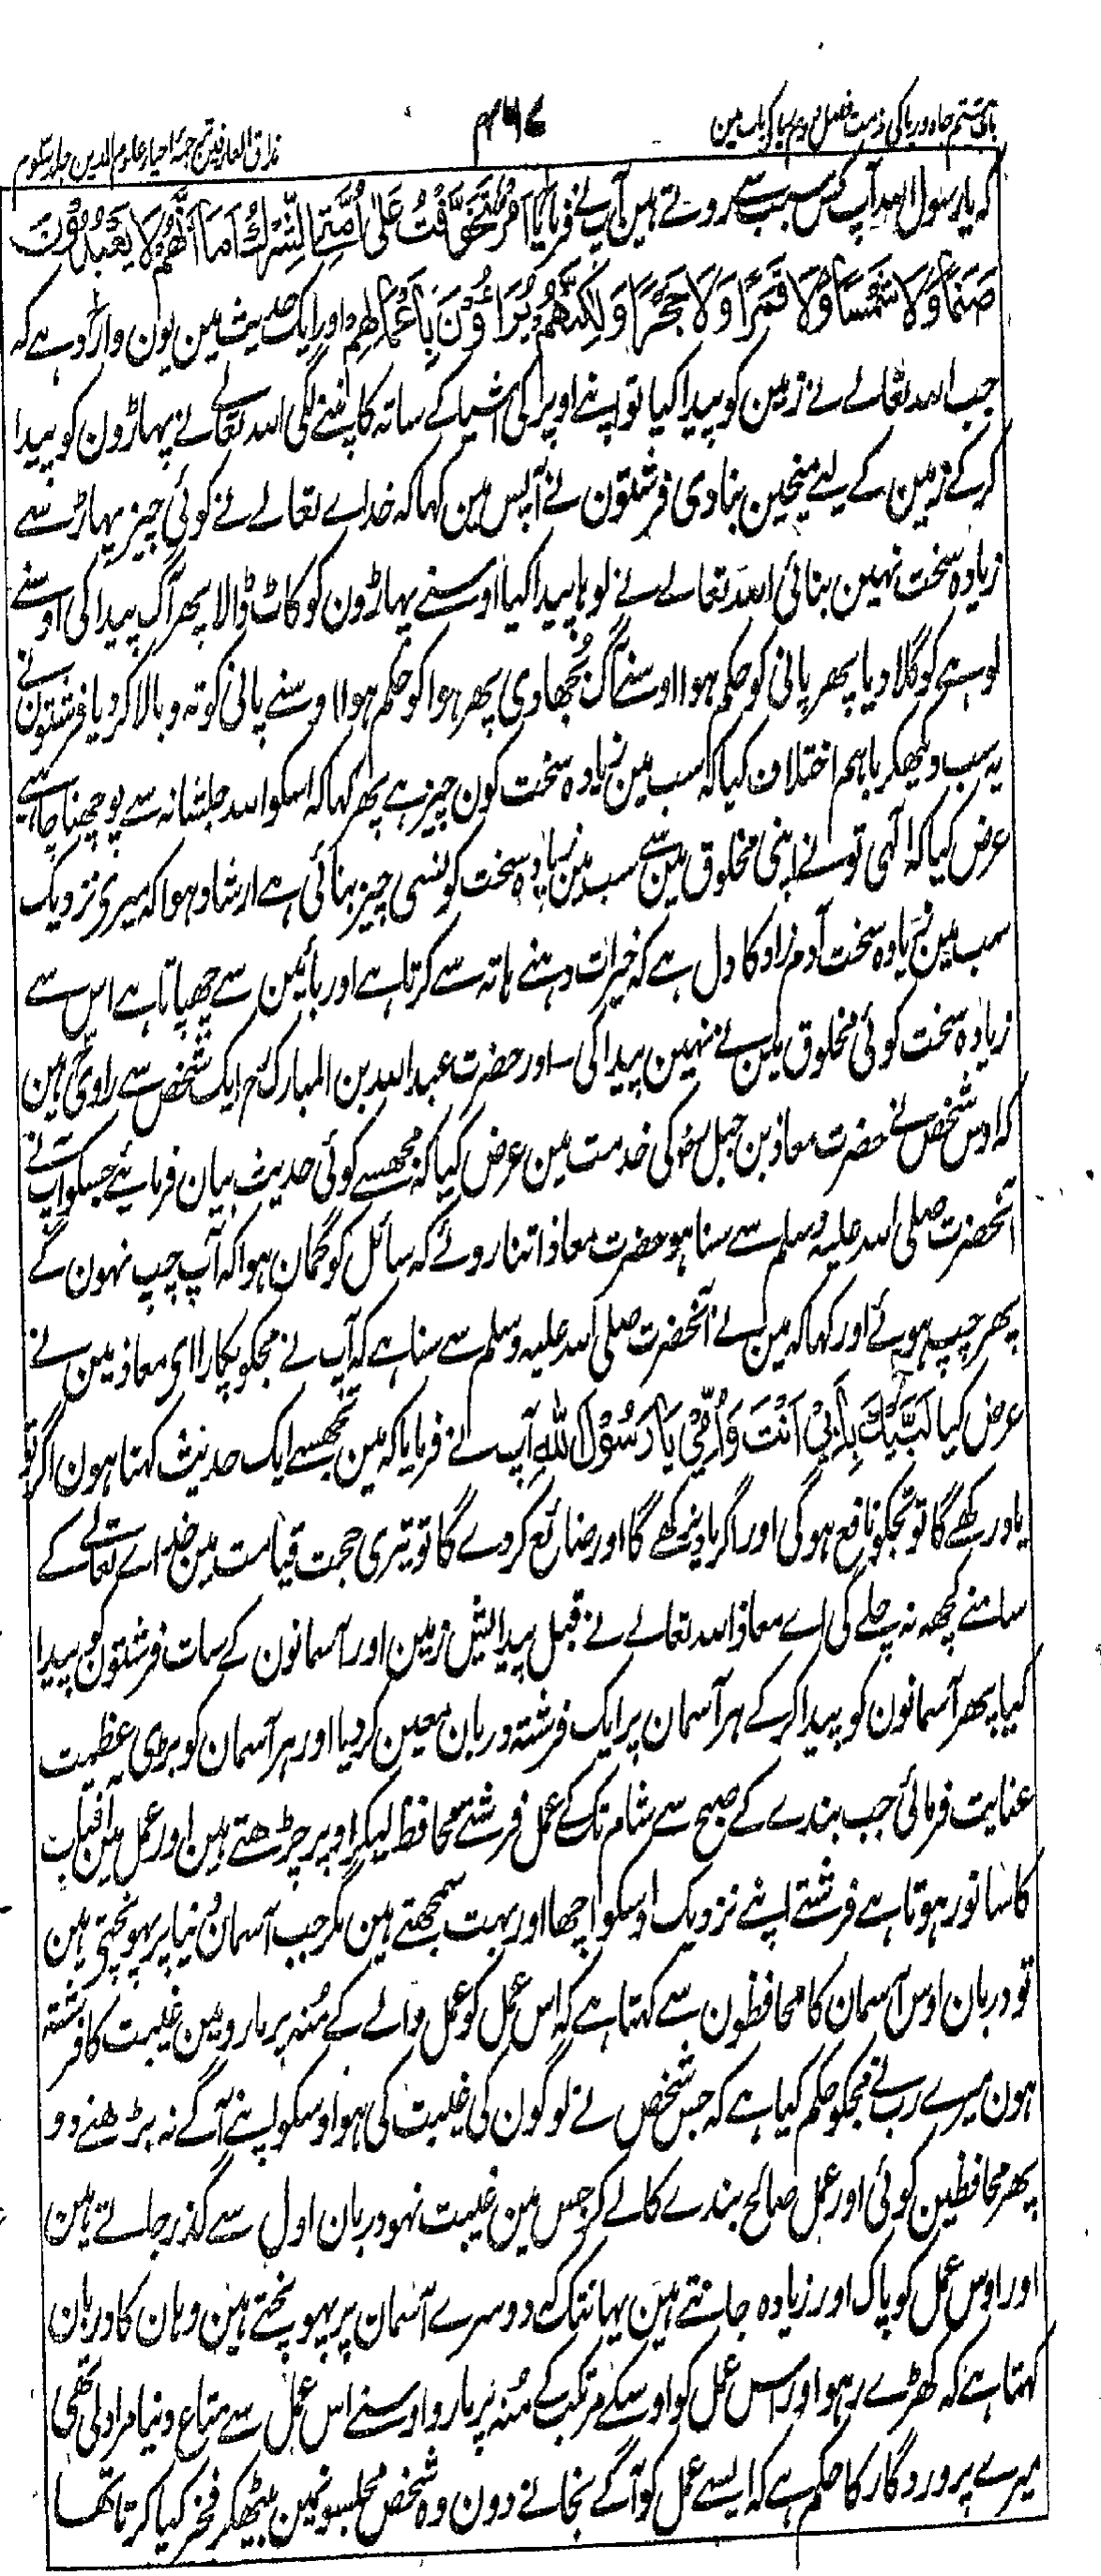 باب ہشتم جاہ و ریا کی مذمت فصل دوم ریا کے باب مین
۴۶۷
مذاق العارفین ترجمۂ احیاء علوم الدین جلد سوم
کہ یا رسول اللہ آپ کس سبب سے روتے ہین آپ نے فرمایا اِنِّیْ تَخَوَّفْتُ عَلٰی اُمَّتِی الشِّرْكَ اَمَا اِنَّهُمْ لَا یَعْبُدُوْنَ
صَنَمًا وَّلَا شَمْسًا وَّلَا قَمَرًا وَّلَا حَجَرًا وَلٰكِنَّهُمْ یُرَاؤُنَ بِاَعْمَالِهِمْ اور ایک حدیث مین یون وارد ہے کہ
جب اللہ تعالے نے زمین کو پیدا کیا تو اپنے اوپر کی اشیا کے ساتہ کانپنے لگی اللہ تعالے نے پہاڑون کو پیدا
کر کے زمین کے لیے میخین بنا دی فرشتون نے آپس مین کہا کہ خداے تعالے نے کوئی چیز پہاڑ سے
زیادہ سخت نہین بنائی اللہ تعالے نے لوہا پیدا کیا اوسنے پہاڑون کو کاٹ ڈالا پھر آگ پیدا کی اوسنے
لوہے کو گلا دیا پھر پانی کو حکم ہوا اوسنے آگ بُجھا دی پھر ہوا کو حکم ہوا اوسنے پانی کو تہ و بالا کر دیا فرشتون نے
یہ سب دیکھکر باہم اختلاف کیا کہ سب مین زیادہ سخت کون چیز ہے پھر کہا کہ اسکو اللہ جلشانہ سے پوچھنا چاہیے
عرض کیا کہ الٰہی تو نے اپنی مخلوق مین سے سب مین زیادہ سخت کونسی چیز بنائی ہے ارشاد ہوا کہ میری نزدیک
سب مین زیادہ سخت آدم زاد کا دل ہے کہ خیرات دہنے ہاتہ سے کرتا ہے اور بائین سے چھپاتا ہے اس سے
زیادہ سخت کوئی مخلوق مین نے نہین پیدا کی ۔ اور حضرت عبد اللہ بن المبارک رح ایک شخص سے راوی ہین
کہ اوس شخص نے حضرت معاذ بن جبل رض کی خدمت مین عرض کیا کہ مجھسے کوئی حدیث بیان فرمائیے جسکو آپ نے
آنحضرت صلی اللہ علیہ وسلم سے سنا ہو حضرت معاذ اتنا روئے کہ سائل کو گمان ہوا کہ آپ چپ نہون گے
پھر چپ ہوئے اور کہا کہ مین نے آنحضرت صلی اللہ علیہ وسلم سے سنا ہے کہ آپ نے مجکو پکارا ای معاذ مین نے
عرض کیا لَبَّیْكَ بِاَبِیْ اَنْتَ وَاُمِّیْ یَا رَسُوْلَ اللهِ آپ نے فرمایا کہ مین تجھسے ایک حدیث کہتا ہون اگر تو
یاد رکھے گا تو تجکو نافع ہو گی اور اگر یاد نرکھے گا اور ضائع کر دے گا تو تیری حجت قیامت مین خداے تعالے کے
سامنے کچھہ نہ چلے گی اے معاذ اللہ تعالے نے قبل پیدایش زمین اور آسمانون کے سات فرشتون کو پیدا
کیا پھر آسمانون کو پیدا کر کے ہر آسمان پر ایک فرشتہ دربان معین کر دیا اور ہر آسمان کو بڑی عظمت
عنایت فرمائی جب بندے کے صبح سے شام تک کے عمل فرشتے محافظ لیکر اوپر چڑھتے ہین اور عمل مین آفتاب
کا سا نور ہوتا ہے فرشتے اپنے نزدیک اوسکو اچھا اور بہت سمجھتے ہین مگر جب آسمان دُنیا پر پہونچتے ہین
تو دربان اوس آسمان کا محافظون سے کہتا ہے کہ اس عمل کو عمل والے کے مُنہ پر مارو مین غیبت کا فرشتہ
ہون میرے رب نے مجکو حکم کیا ہے کہ جس شخص نے لوگون کی غیبت کی ہو اوسکو اپنے آگے نہ بڑھنے دو
پھر محافظین کوئی اور عمل صالح بندے کا لے کر جس مین غیبت نہو دربان اول سے گذر جاتے ہین
اور اوس عمل کو پاک اور زیادہ جانتے ہین یہانتک کہ دوسرے آسمان پر پہونچتے ہین وہان کا دربان
کہتا ہے کہ کھڑے رہو اور اس عمل کو اوسکے مرتکب کے مُنہ پر مارو اوسنے اس عمل سے متاع دنیا مراد لی تھی
میرے پروردگار کا حکم ہے کہ ایسے عمل کو آگے نجانے دون وہ شخص مجلسونمین بیٹھکر فخر کیا کرتا تھا